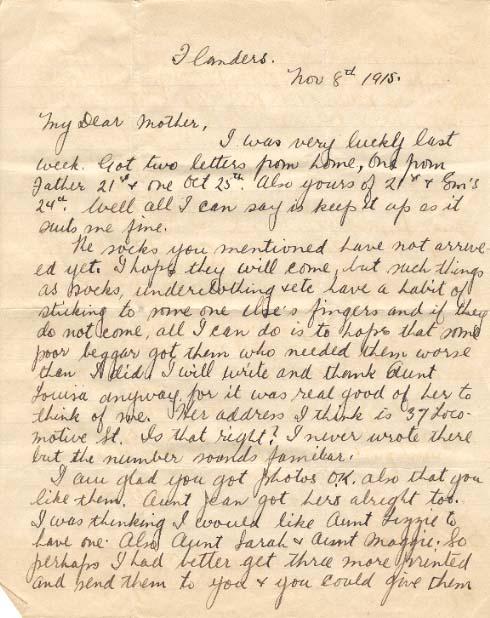 Flanders.
Nov 8th 1915.
My Dear Mother,
I was very luckly last
week. Got two letters from home, one from
Father 21st & one Oct 25th. Also yours of 21st & Em's
24th. Well all I can say is keep it up as it
suits me fine.
Re socks you mentioned have not arriv-
ed yet. I hope they will come, but such things
as socks, underclothing & etc have a habit of
sticking to some one else's fingers and if they
do not come, all I can do is to hope that some
poor beggar got them who needed them worse
than I did. I will write and thank Aunt
Louisa anyway, for it was real good of her to
think of me. Her address I think is 37 Loco-
motive St. Is that right? I never wrote there
but the number sounds familiar.
I am glad you got photos OK. also that you
like them. Aunt Jean got hers alright too.
I was thinking I would like Aunt Lizzie to
have one. Also Aunt Sarah & Aunt Maggie. So
perhaps I had better get three more printed
and send them to you & you could give them